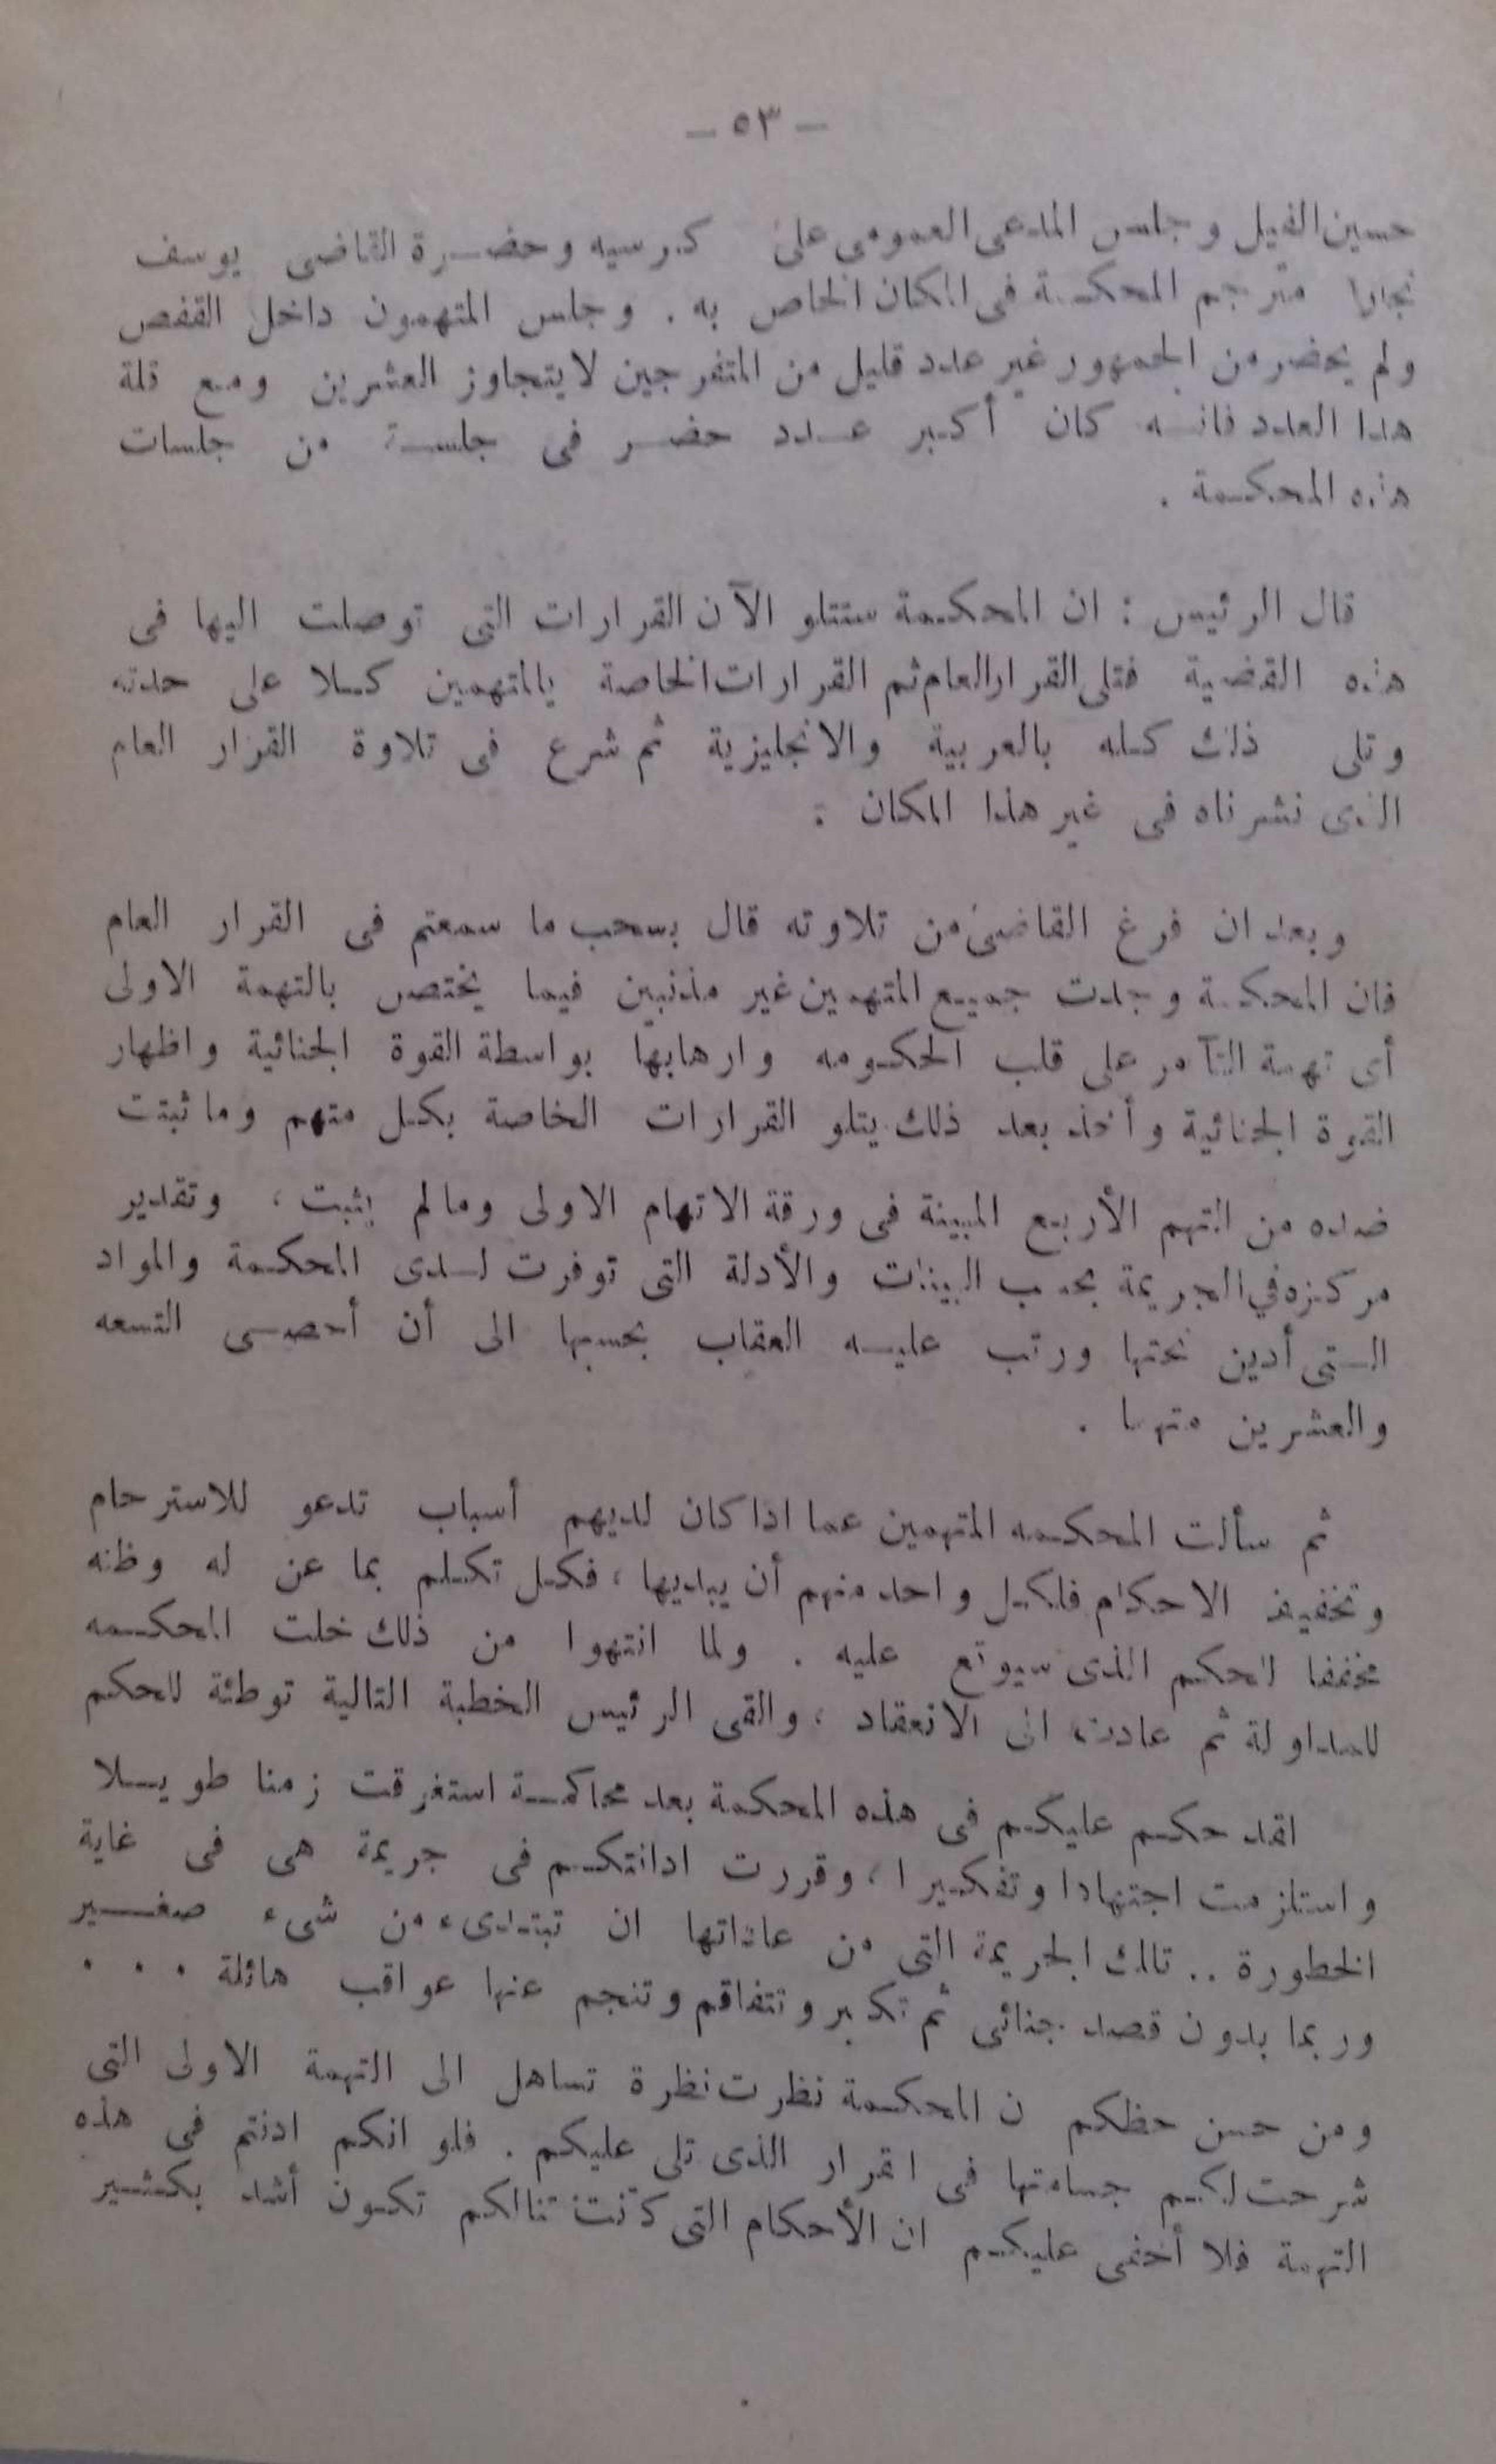 — ٥٣ —
حسين الفيل وجلس المدعى العمومى على كرسيه وحضرة القاضى يوسف
نجارا مترجم المحكمة فى المكان الخاص به . وجلس المتهمون داخل القفص
ولم يحضر من الجمهور غير عدد قليل من المتفرجين لا يتجاوز العشرين ومع قلة
هذا العدد فانه كان أكبر عدد حضر فى جلسة من جلسات
هذه المحكمة .
قال الرئيس : ان المحكمة ستتلو الآن القرارات التى توصلت اليها فى
هذه القضية فتلى القرار العام ثم القرارات الخاصة بالمتهمين كلا على حدته
وتلى ذلك كله بالعربية والانجليزية ثم شرع فى تلاوة القرار العام
الذى نشرناه فى غير هذا المكان :
وبعد ان فرغ القاضى من تلاوته قال بسحب ما سمعتم فى القرار العام
فان المحكمة وجدت جميع المتهمين غير مذنبين فيما يختص بالتهمة الاولى
أى تهمة التآمر على قلب الحكومه وارهابها بواسطة القوة الجنائية واظهار
القوة الجنائية وأخذ بعد ذلك يتلو القرارات الخاصة بكل متهم وما ثبتت
ضده من التهم الأربع المبينة فى ورقة الاتهام الاولى وما لم يثبت ، وتقدير
مركزه في الجريمة بحسب البينات والأدلة التى توفرت لدى المحكمة والمواد
التى أدين تحتها ورتب عليه العقاب بحسبها الى أن أحصى التسعه
والعشرين متهما .
ثم سألت المحكمه المتهمين عما اذا كان لديهم أسباب تدعو للاسترحام
وتخفيف الاحكام فلكل واحد منهم أن يبديها ، فكل تكلم بما عن له وظنه
مخففا للحكم الذى سيوقع عليه . ولما انتهوا من ذلك خلت المحكمه
للمداولة ثم عادت الى الانعقاد ، والقى الرئيس الخطبة التالية توطئة للحكم
لقد حكم عليكم فى هذه المحكمة بعد محاكمة استغرقت زمنا طويلا
واستلزمت اجتهادا وتفكيرا ، وقررت ادانتكم فى جريمة هى فى غاية
الخطورة .. تلك الجريمة التى من عاداتها ان تبتدىء من شىء صغير
وربما بدون قصد جنائى ثم تكبر وتتفاقم وتنجم عنها عواقب هائلة . . .
ومن حسن حظكم ن المحكمة نظرت نظرة تساهل الى التهمة الاولى التى
شرحت لكم جسامتها فى القرار الذى تلى عليكم . فلو انكم ادنتم فى هذه
التهمة فلا أخفى عليكم ان الأحكام التى كانت تنالكم تكون أشد بكثير